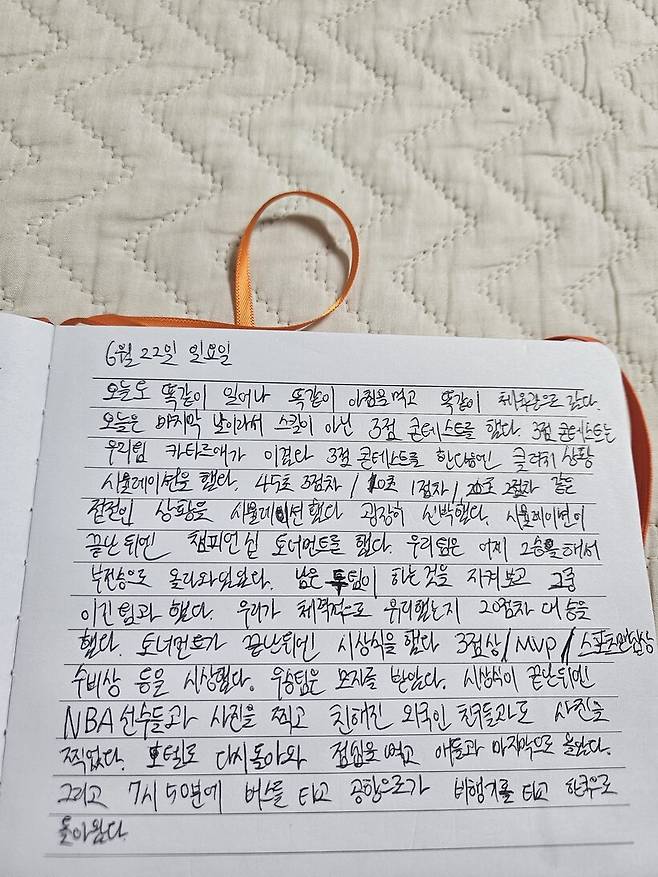 6월 22일 일요일
오늘도 똑같이 일어나 똑같이 아침을 먹고 똑같이 체육관으로 갔다.
오늘은 마지막 날이라서 스킬이 아닌 3점 콘테스트를 했다. 3점 콘테스트는
우리팀 카타르애가 이겼다 3점 콘테스트를 한다음엔 클러치 상황
시뮬레이션을 했다. 45초 3점차 / 10초 1점차 / 20초 2점차 같은
접전인 상황을 시뮬레이션 했다 굉장히 신박했다. 시뮬레이션이
끝난 뒤엔 챔피언쉽 토너먼트를 했다. 우리팀은 어제 2승을 해서
부전승으로 올라와있었다. 남은 두팀이 하는 것을 지켜보고 그중
이긴 팀과 했다. 우리가 체력적으로 유리했는지 20점차 대승을
했다. 토너먼트가 끝난뒤엔 시상식을 했다 3점상 / MVP / 스포츠맨쉽상
수비상 등을 시상했다. 우승팀은 모자를 받았다. 시상식이 끝난뒤엔
NBA 선수들과 사진을 찍고 친해진 외국인 친구들과도 사진을
찍었다. 호텔로 다시 돌아와 점심을 먹고 애들과 마지막으로 놀았다.
그리고 7시 50분에 버스를 타고 공항으로가 비행기를 타고 한국으로
돌아왔다.